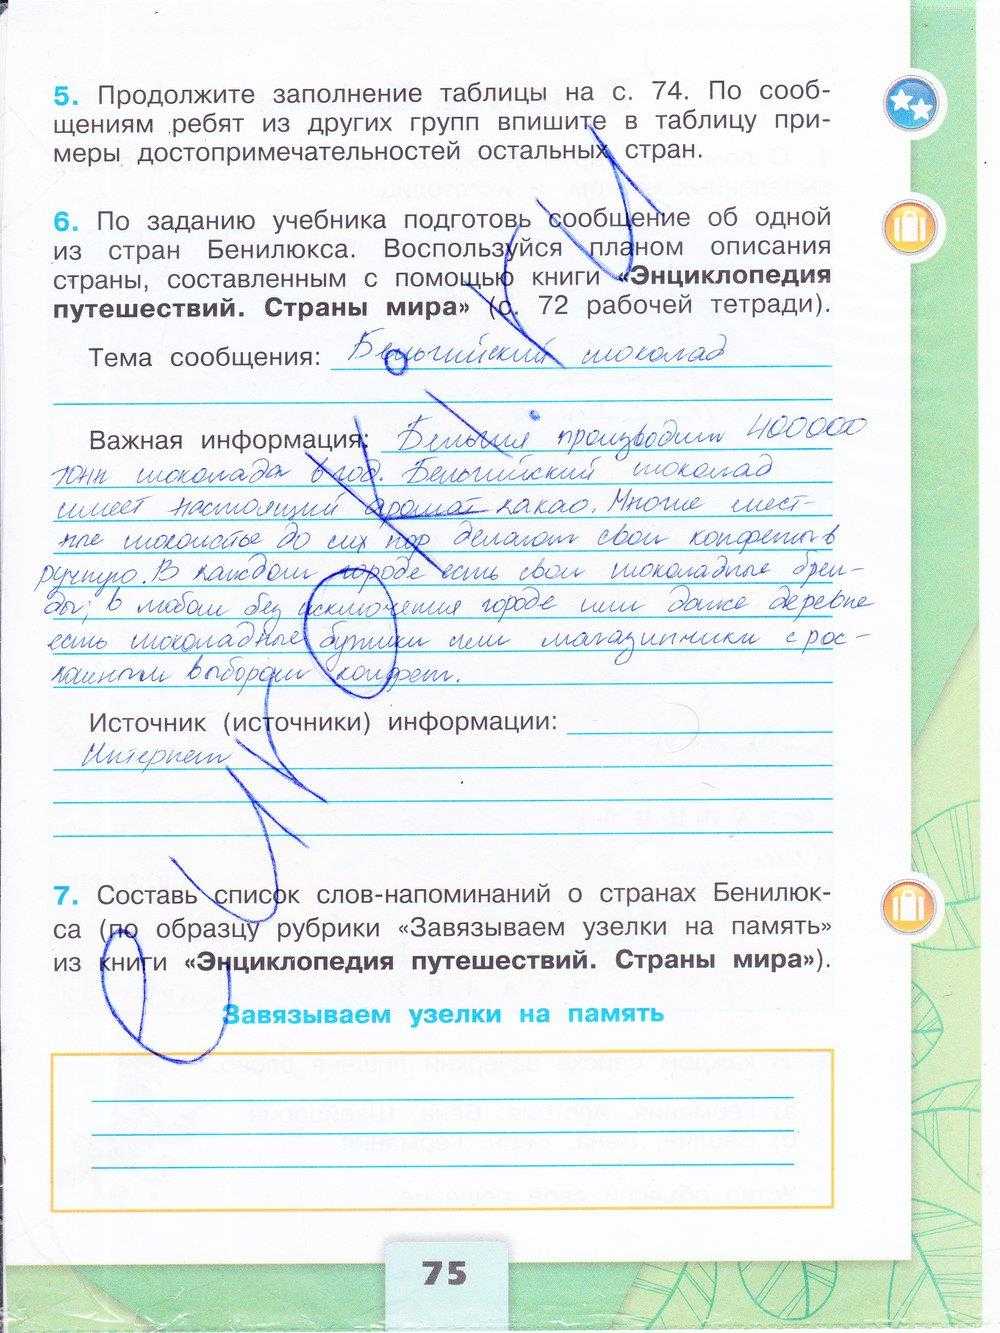 5. Продолжите заполнение таблицы на с. 74. По сооб-
щениям ребят из других групп впишите в таблицу при-
меры достопримечательностей остальных стран.
6. По заданию учебника подготовь сообщение об одной
из стран Бенилюкса. Воспользуйся планом описания
страны, составленным с помощью книги «Энциклопедия
путешествий. Страны мира» (с. 72 рабочей тетради).
Тема сообщения: Бельгийский шоколад
Важная информация: Бельгия производит 400000
тонн шоколада в год. Бельгийский шоколад
имеет настоящий аромат какао. Многие мест-
ные шоколатье до сих пор делают свои конфеты в
ручную. В каждом городе есть свои шоколадные брен-
ды; в любом без исключения городе или даже деревне
есть шоколадные бутики или магазинчики с рос-
кошным выбором конфет.
Источник (источники) информации:
Интернет
7. Составь список слов-напоминаний о странах Бенилюк-
са (по образцу рубрики «Завязываем узелки на память»
из книги «Энциклопедия путешествий. Страны мира»).
Завязываем узелки на память
75